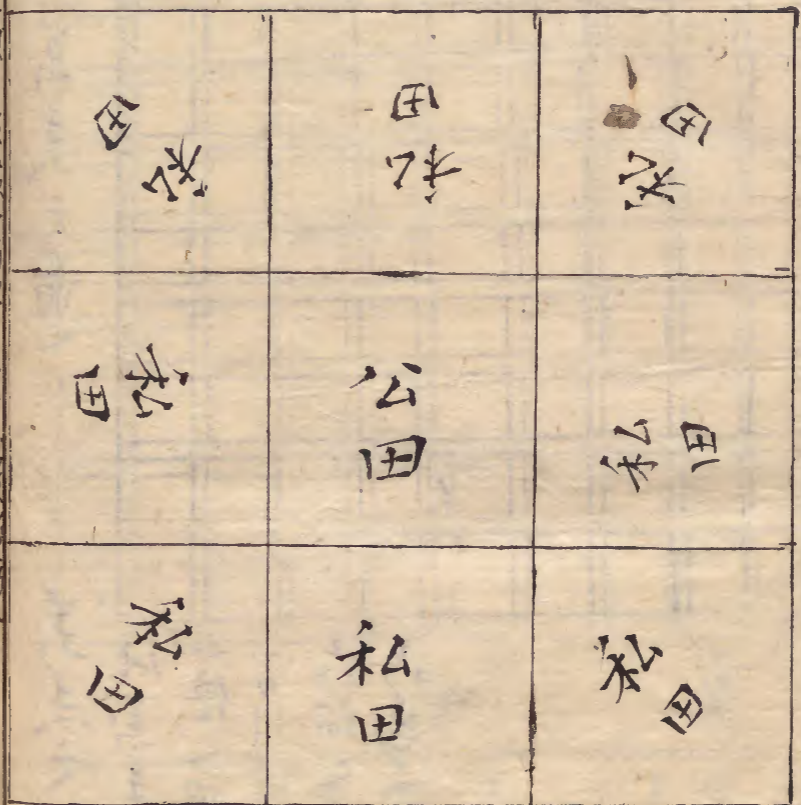 私田
私田
私田
私田
公田
私田
私田
私田
私田